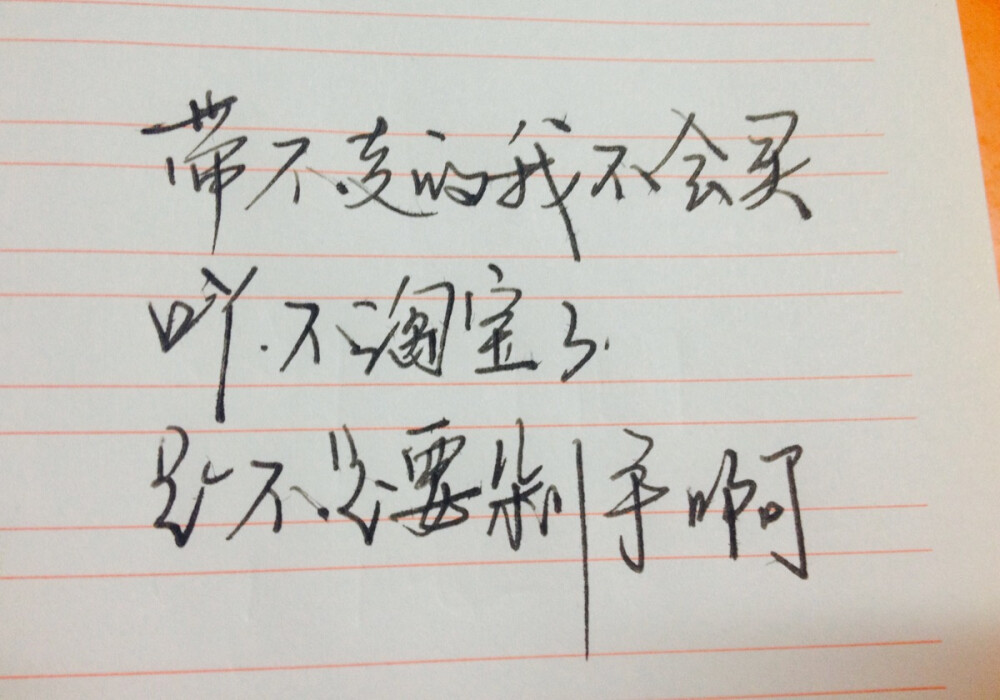 带不走的我不会买
吖.不淘宝了.
是不是要剁手啊